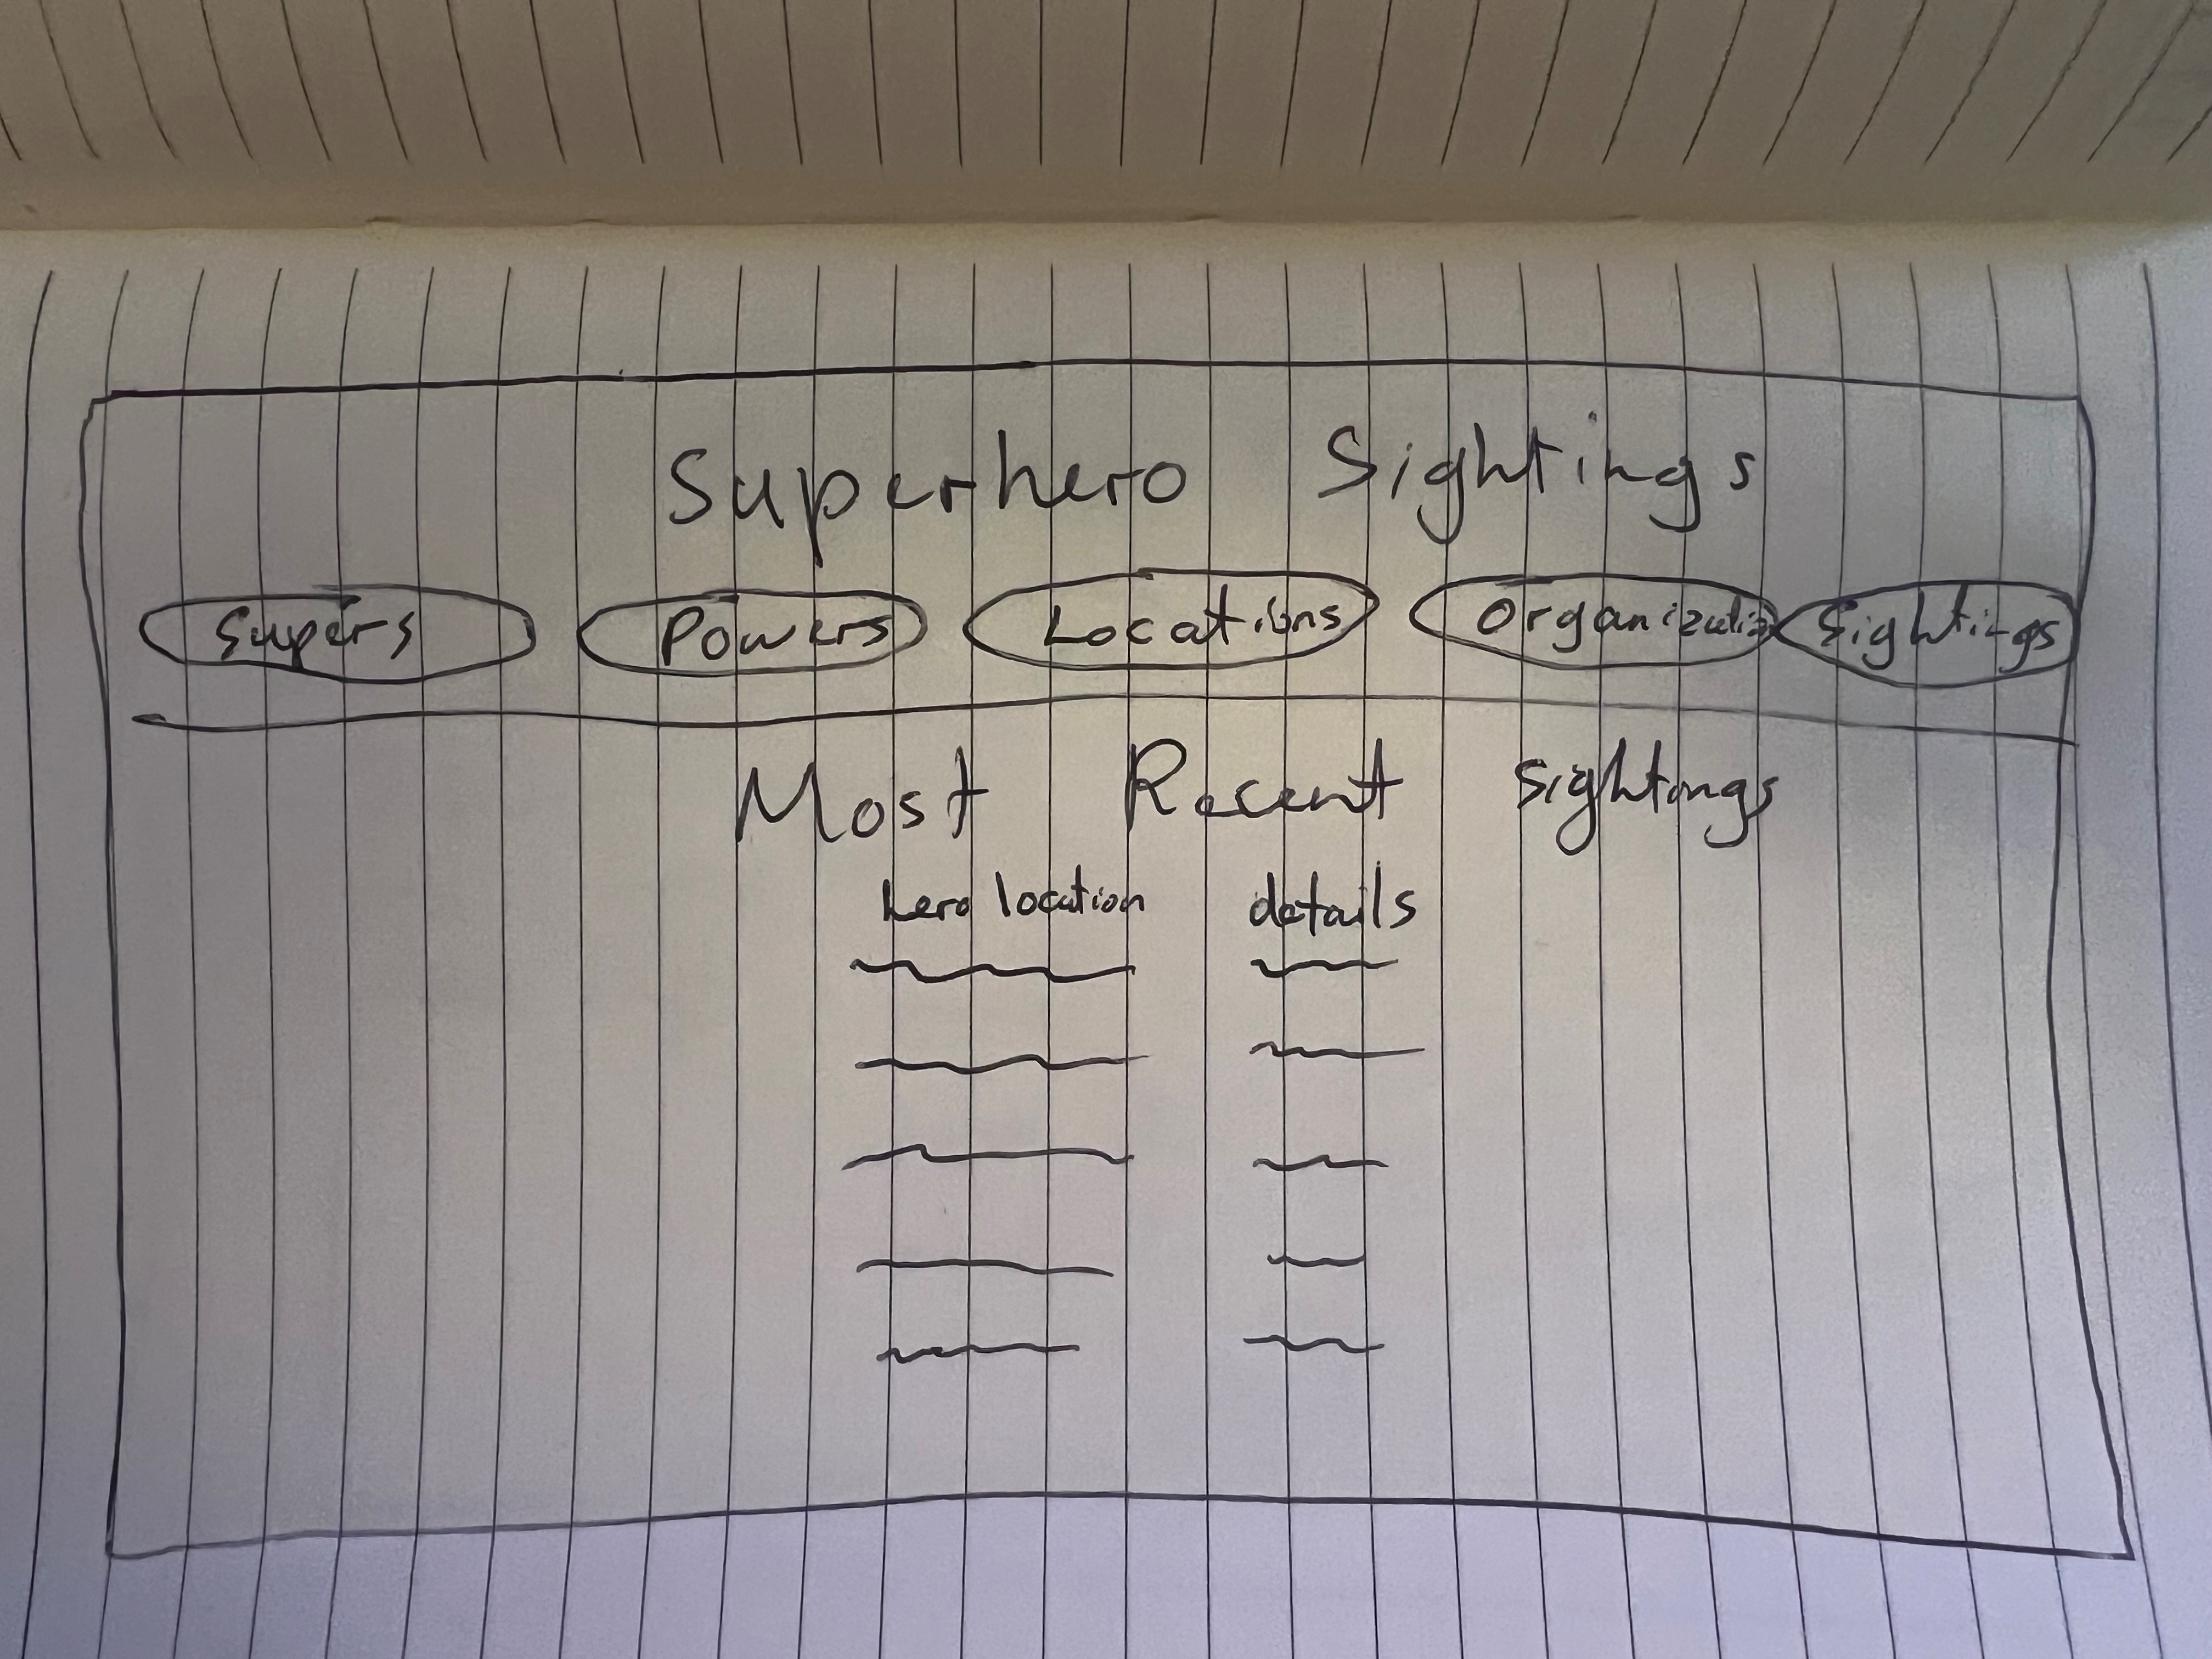 Superhero Sightings
Supers Powers Locations Organizatio Sightings
Most Recent Sightings
hero location details